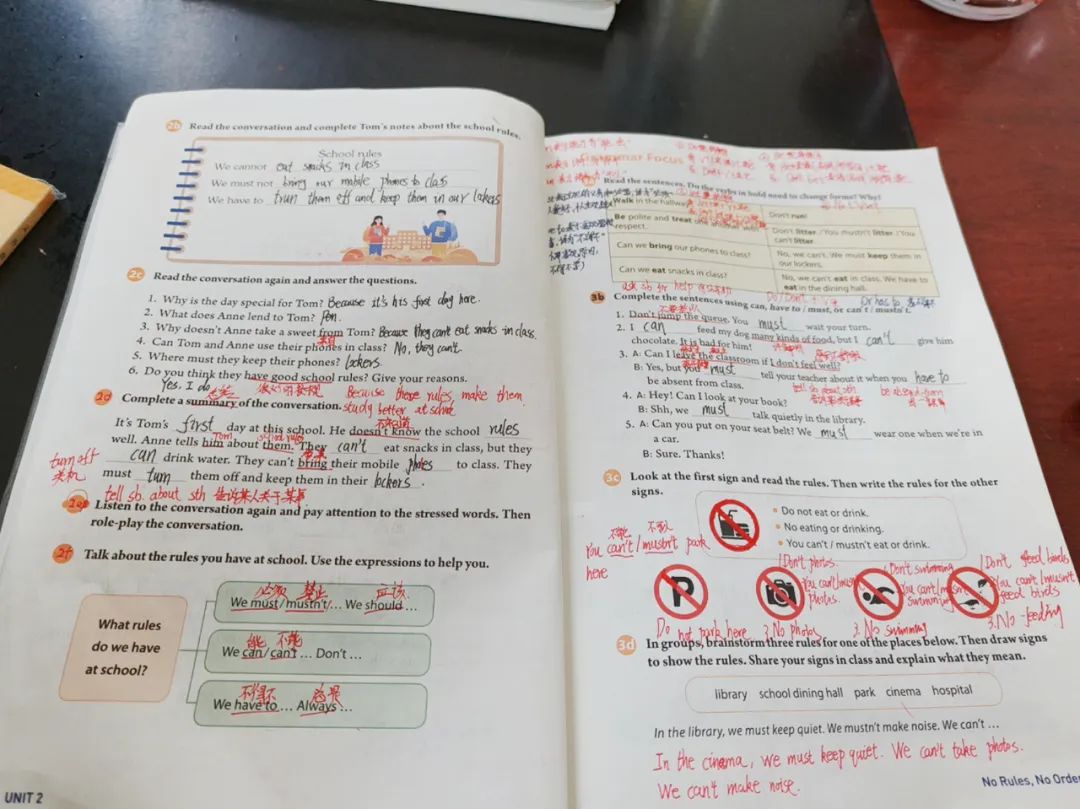 2b Read the conversation and complete Tom's notes about the school rules.
School rules
We cannot eat snacks in class
We must not bring our mobile phones to class
We have to trun them off and keep them in our lokers
2c Read the conversation again and answer the questions.
1. Why is the day special for Tom? Because it's his first day here.
2. What does Anne lend to Tom? Pen.
3. Why doesn't Anne take a sweet from Tom? Because they can't eat snacks in class.
来自
4. Can Tom and Anne use their phones in class? No, they can't.
5. Where must they keep their phones? lockers.
6. Do you think they have good school rules? Give your reasons.
Yes, I do Because these rules, make them
study better at school
2d Complete a summary of the conversation.
不知道
It's Tom's first day at this school. He doesn't know the school rules
Tom school rules
well. Anne tells him about them. They can't eat snacks in class, but they
can drink water. They can't bring their mobile phones to class. They
turn off
关机
must turn them off and keep them in their lockers.
tell sb. about sth 告诉某人关于某事
2e Listen to the conversation again and pay attention to the stressed words. Then
role-play the conversation.
2f Talk about the rules you have at school. Use the expressions to help you.
What rules
do we have
at school?
必须 禁止 应该
We must/mustn't/... We should ...
能 不能
We can/can't ... Don't ...
不得不 总是
We have to ... Always ...
UNIT 2
Grammar Focus
Read the sentences. Do the verbs in bold need to change forms? Why?
Walk in the hallways.
Don't run!
Be polite and treat one another with
respect.
Don't litter. / You mustn't litter. / You
can't litter.
Can we bring our phones to class?
No, we can't. We must keep them in
our lockers.
Can we eat snacks in class?
No, we can't eat in class. We have to
eat in the dining hall.
ask sb for help
3b Complete the sentences using can, have to / must, or can't / mustn't.
1. Don't jump the queue. You must wait your turn.
2. I can feed my dog many kinds of food, but I can't give him
chocolate. It is bad for him!
3. A: Can I leave the classroom if I don't feel well?
B: Yes, but you must tell your teacher about it when you have to
be absent from class.
tell sb about sth
be absent from
4. A: Hey! Can I look at your book?
B: Shh, we must talk quietly in the library.
5. A: Can you put on your seat belt? We must wear one when we're in
a car.
B: Sure. Thanks!
3c Look at the first sign and read the rules. Then write the rules for the other
signs.
Do not eat or drink.
No eating or drinking.
You can't / mustn't eat or drink.
不能 不可以
You can't / mustn't park
here
P
Do not park here
1 Don't photos.
You can't/mus
photos.
2. No photos
1 Don't swimming
You can't/mustn't
swimming
3. No swimming
1 Don't feed birds
You can't/musn't
feed birds
3. No feeding
3d In groups, brainstorm three rules for one of the places below. Then draw signs
to show the rules. Share your signs in class and explain what they mean.
library school dining hall park cinema hospital
In the library, we must keep quiet. We mustn't make noise. We can't ...
In the cinema, we must keep quiet. We can't take photos.
We can't make noise.
No Rules, No Order